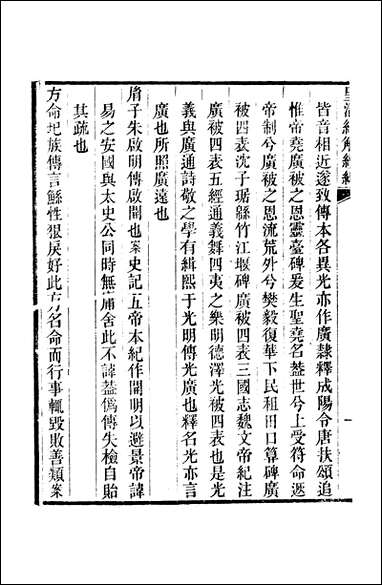 皇清經解續編
皆音相近遂致傳本各異光亦作廣隸釋成陽令唐扶頌追
惟帝堯廣被之恩靈臺碑爰生聖堯名蓋世兮上受符命遝
帝制兮廣被之恩流荒外兮樊毅復華下民租田口算碑廣
被四表沈子琚緜竹江堰碑廣被四表三國志魏文帝紀注
廣被四表五經通義舞四夷之樂明德澤光被四表也是光
義與廣通詩敬之學有緝熙于光明傳光廣也釋名光亦言
廣也所照廣遠也
胤子朱啟明傳啟開也案史記五帝本紀作開明以避景帝諱
易之安國與太史公同時無庸舍此不諱葢僞傳失檢自貽
其疏也
方命圮族傳言鯀性狠戾好此方名命而行事輒毀敗善類案